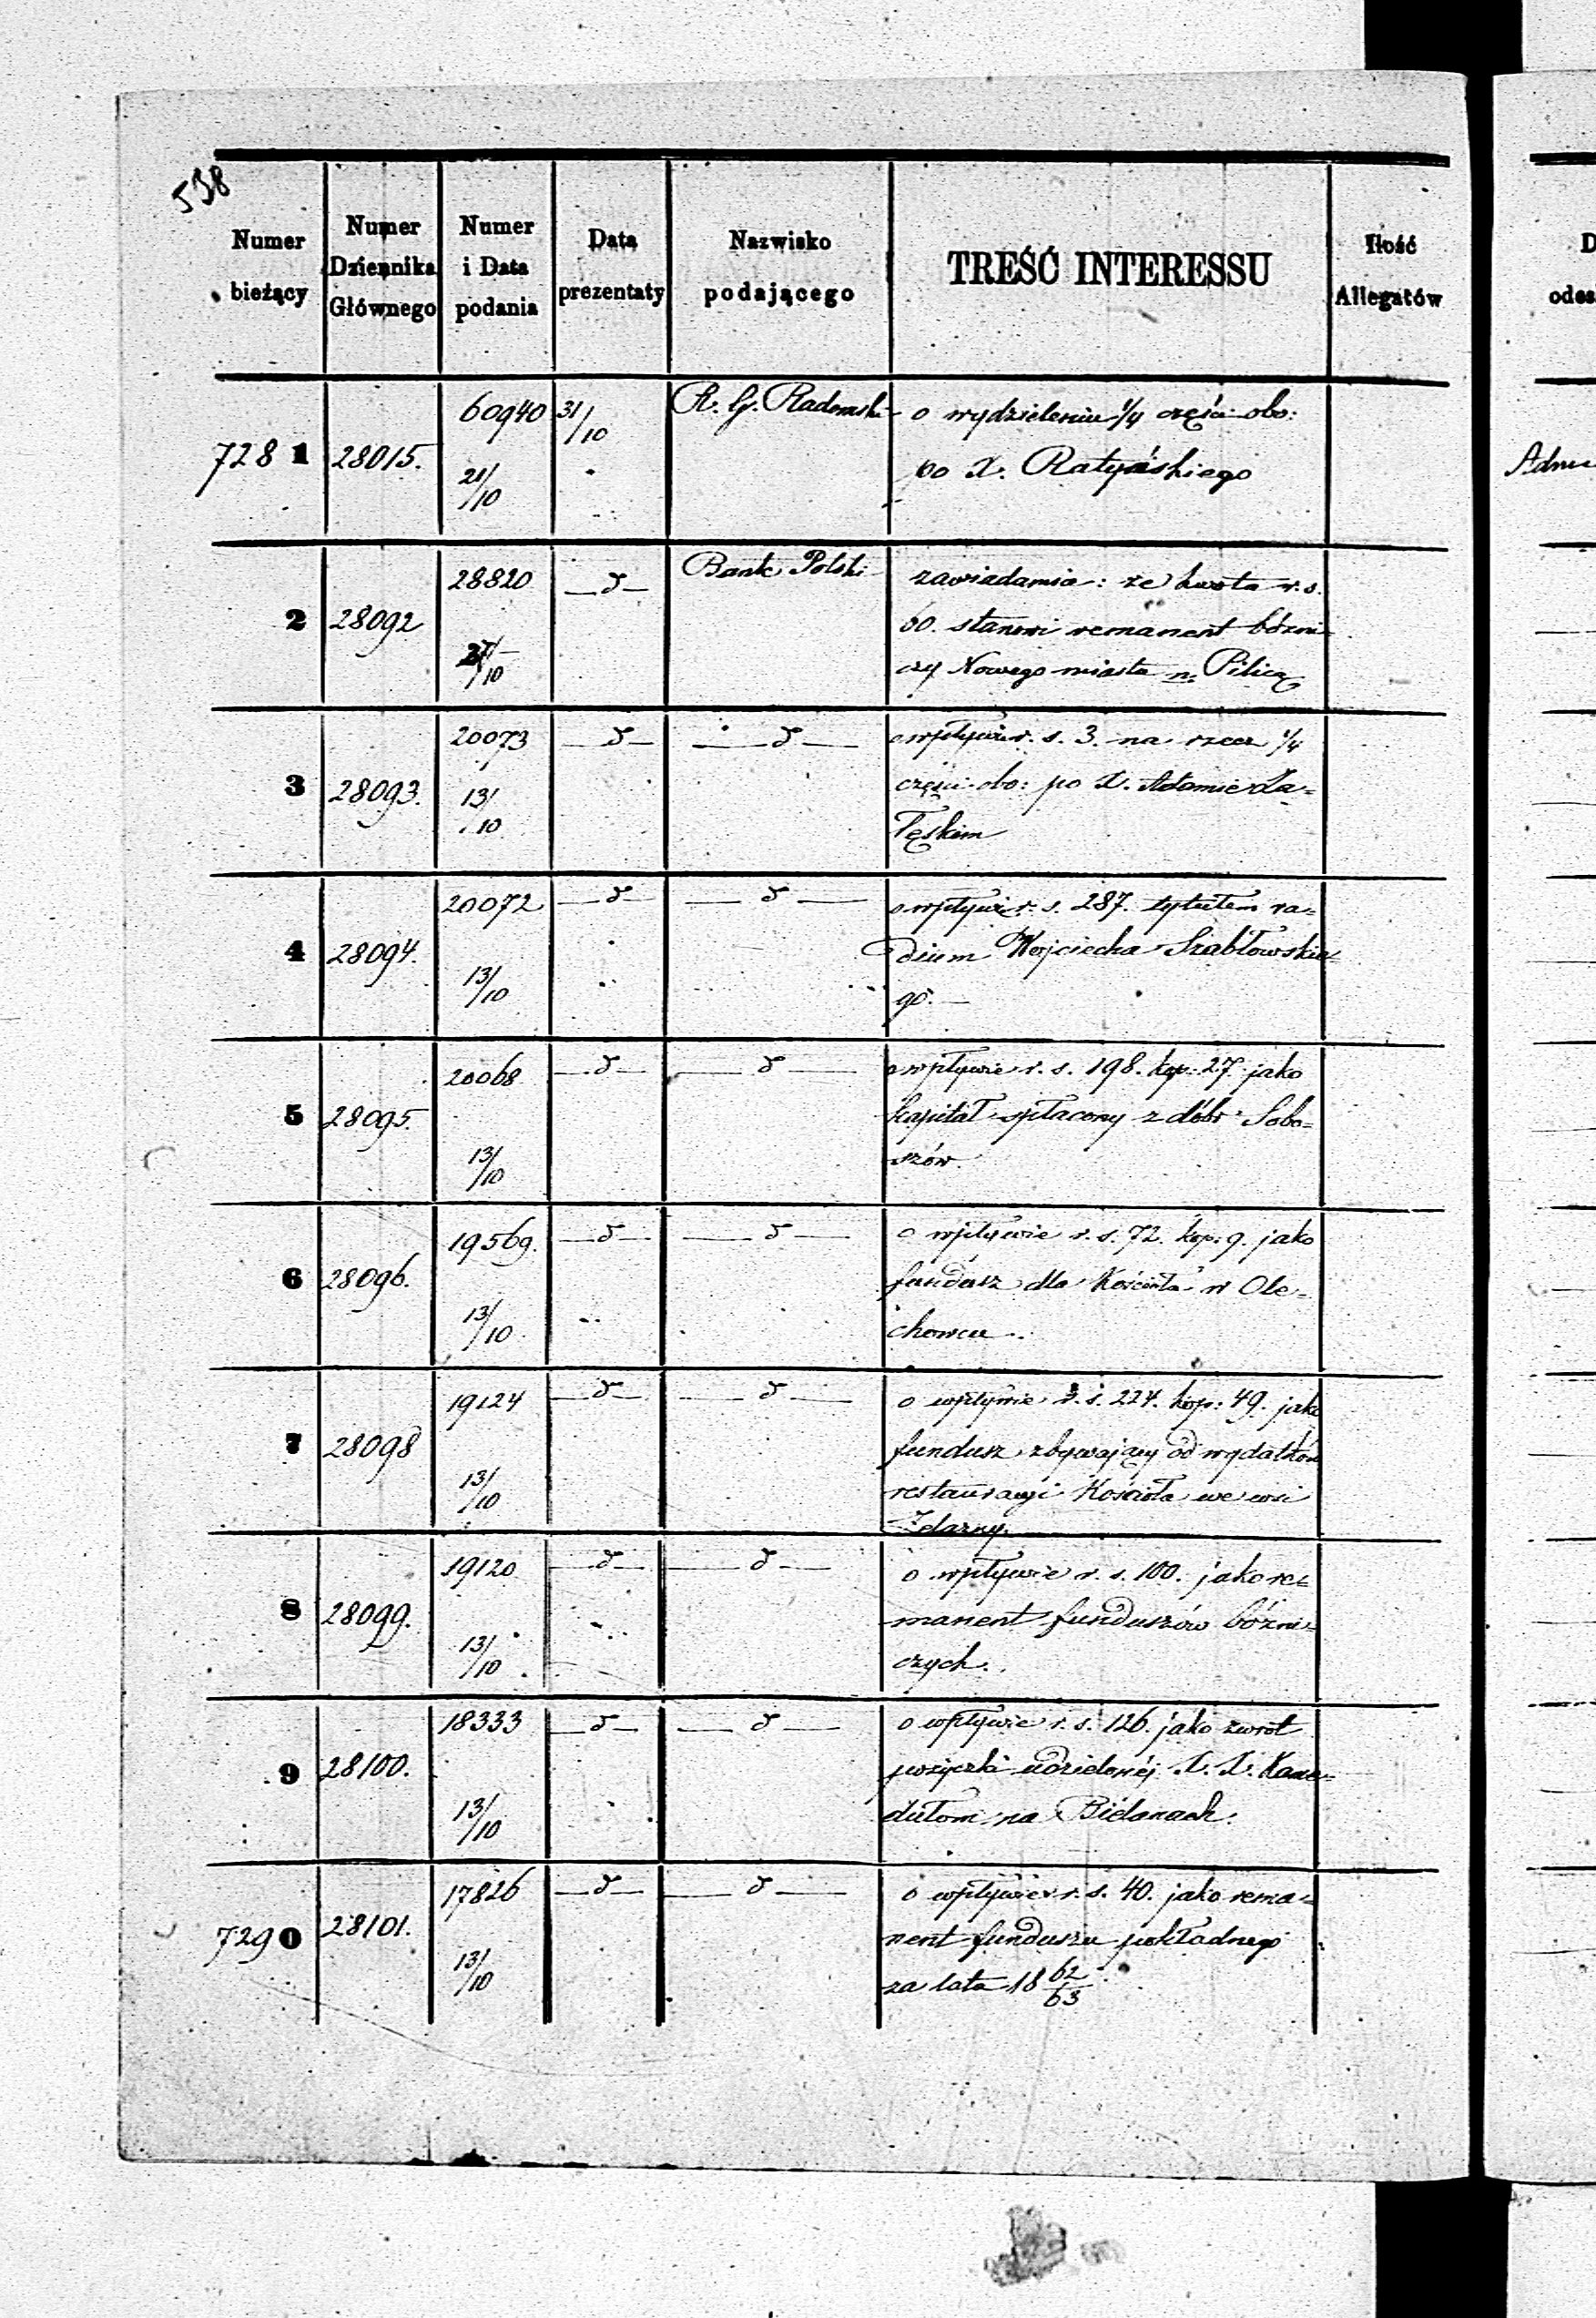 538
Numer bieżący
Numer Dziennika Głównego
Numer i Data podania
Data prezentaty
Nazwisko podającego
TREŚĆ INTERESSU
Ilość Allegatów
7281 28015. 60940 21/10 31/10 R. G. Radomski
o wydzieleniu 1/4 części obo:
po X. Ratyńskiego
2 28092 28820 27/10 d Bank Polski
zawiadamia: że kwota r. s.
60. stanowi remanent bóżni-
czy Nowego miasta n. Pilicą
3 28093. 20073 13/10 d d
o wpływie r. s. 3. na rzecz 1/4
części obo: po X. Adamie Za=
łęskim
4 28094. 20072 13/10 d d
o wpływie r. s. 287. tytułem va=
dium Wojciecha Szabłowskie=
go.
5 28095. 20068 13/10 d d
o wpływie r. s. 198. kop: 27. jako
kapitał spłacony z dóbr Sobo=
szów.
6 28096. 19569. 13/10 d d
o wpływie r. s. 72. kop: 9. jako
fundusz dla Kościoła w Ole=
chowcu.
7 28098 19124 13/10 d d
o wpływie r. s. 224. kop: 49. jako
fundusz zbywający od wydatków
restauracyi Kościoła we wsi
Zdarzy.
8 28099. 19120 13/10 d d
o wpływie r. s. 100. jako re=
manent funduszów bóżni=
czych.
9 28100. 18333 13/10 d d
o wpływie r. s. 126. jako zwrot
pożyczki udzielonéj X. X. Kame=
dułom na Bielanach.
7290 28101. 17826 13/10 d d
o wpływie r. s. 40. jako rema=
nent funduszu pokładnego
za lata 18 62/63
D
odes